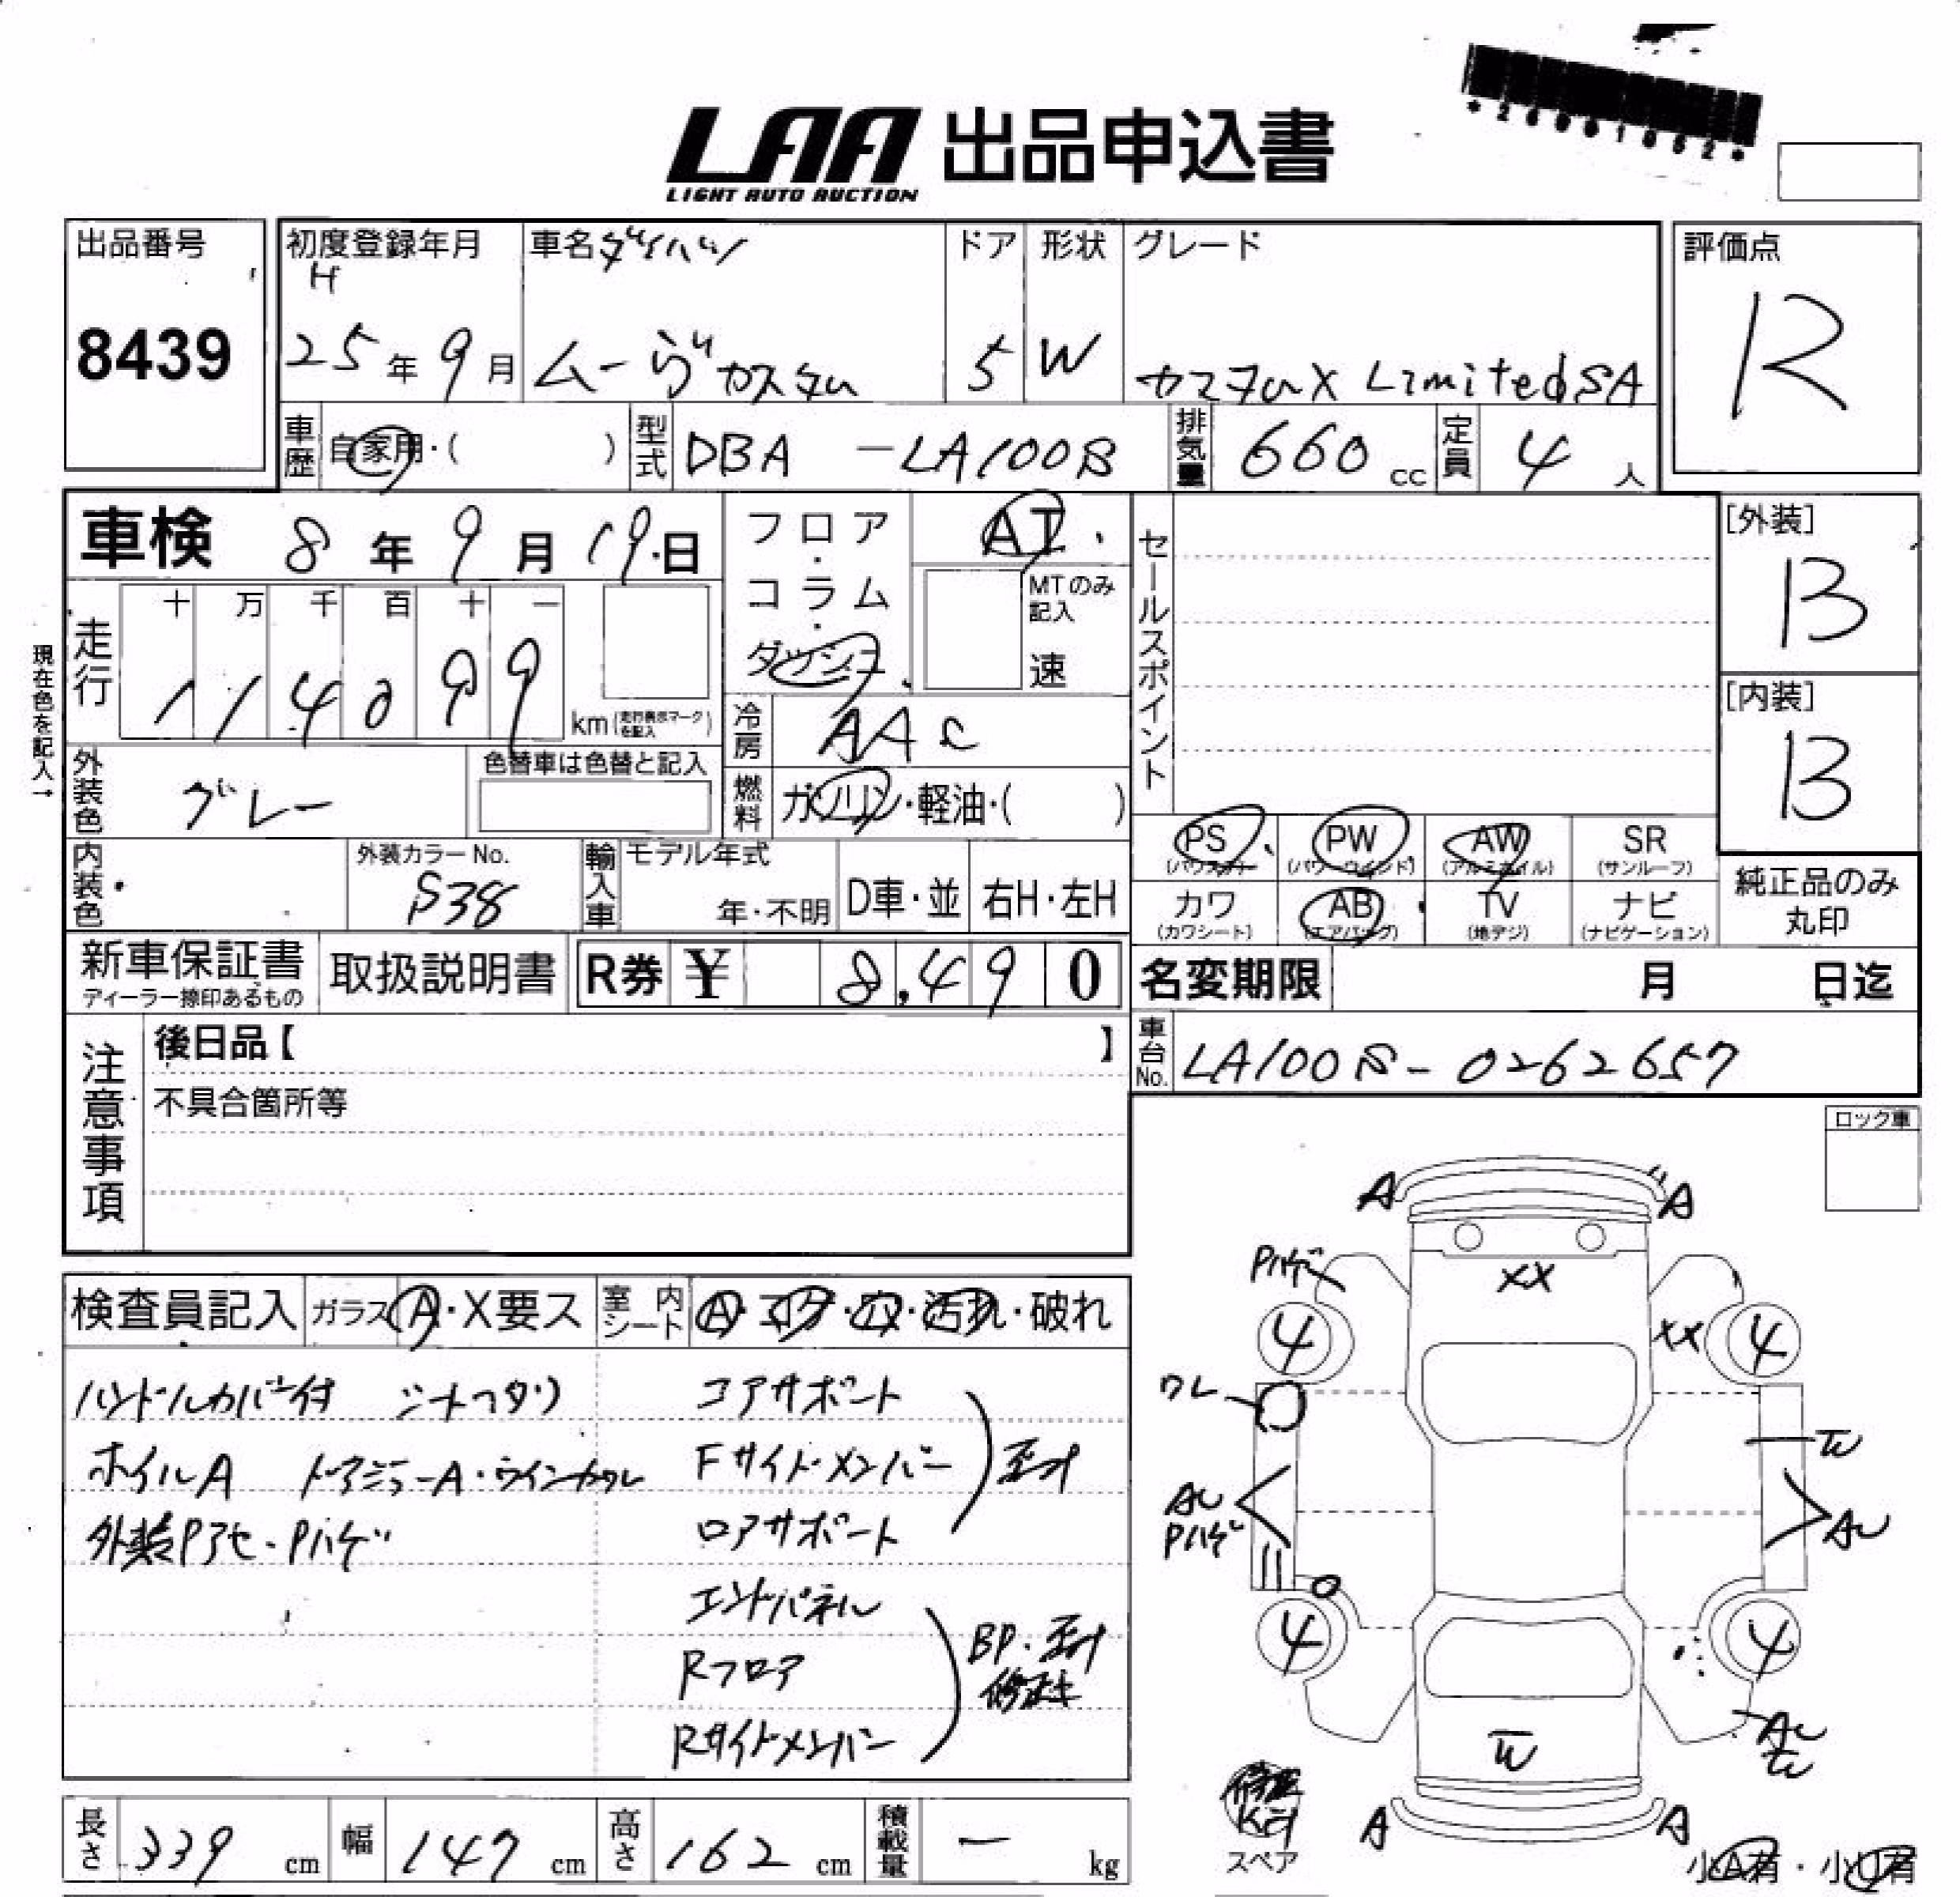 *26001052*
LAA 出品申込書
LIGHT AUTO AUCTION
出品番号
8439
初度登録年月
H
25年9月
車名 ダイハツ
ムーヴカスタム
ドア
5
形状
W
グレード
カスタムX LimitedSA
評価点
R
車歴 自家用・( )
型式 DBA -LA100S
排気量 660 cc
定員 4人
車検 8年9月19日
フロア・コラム・ダッシュ
AT
MTのみ記入
速
セールスポイント
[外装]
B
走行
十 万 千 百 十 一
1 1 4 0 9 9
km (走行表示マークを記入)
現在色を記入→
冷房 AAC
[内装]
B
外装色 グレー
色替車は色替と記入
燃料 ガソリン・軽油・( )
内装色
外装カラーNo.
S38
輸入車
モデル年式
年・不明
D車・並
右H・左H
PS (パワステ)
PW (パワーウインド)
AW (アルミホイル)
SR (サンルーフ)
カワ (カワシート)
AB (エアバッグ)
TV (地デジ)
ナビ (ナビゲーション)
純正品のみ
丸印
新車保証書
ディーラー捺印あるもの
取扱説明書
R券 ¥ 8,490
名変期限 月 日迄
注意事項
後日品【 】
不具合箇所等
車台No. LA100S-0262657
ロック車
検査員記入 ガラス A・X要ス 室内シート A・コゲ・穴・汚れ・破れ
ハンドルカバー付 シートヘタリ
ホイルA ドアミラーA・ウインカワレ
外装Pアセ・Pハゲ
コアサポート
Fサイドメンバー 歪み
ロアサポート
エンドパネル
Rフロア BP・歪み 修正
Rサイドメンバー
A A
Pハゲ
XX
4 XX 4
ワレ
W
AU
Pハゲ
AU
4 4
W
AU
A A
修理Kit
スペア
小A有・小U有
長さ 339 cm
幅 147 cm
高さ 162 cm
積載量 ー kg